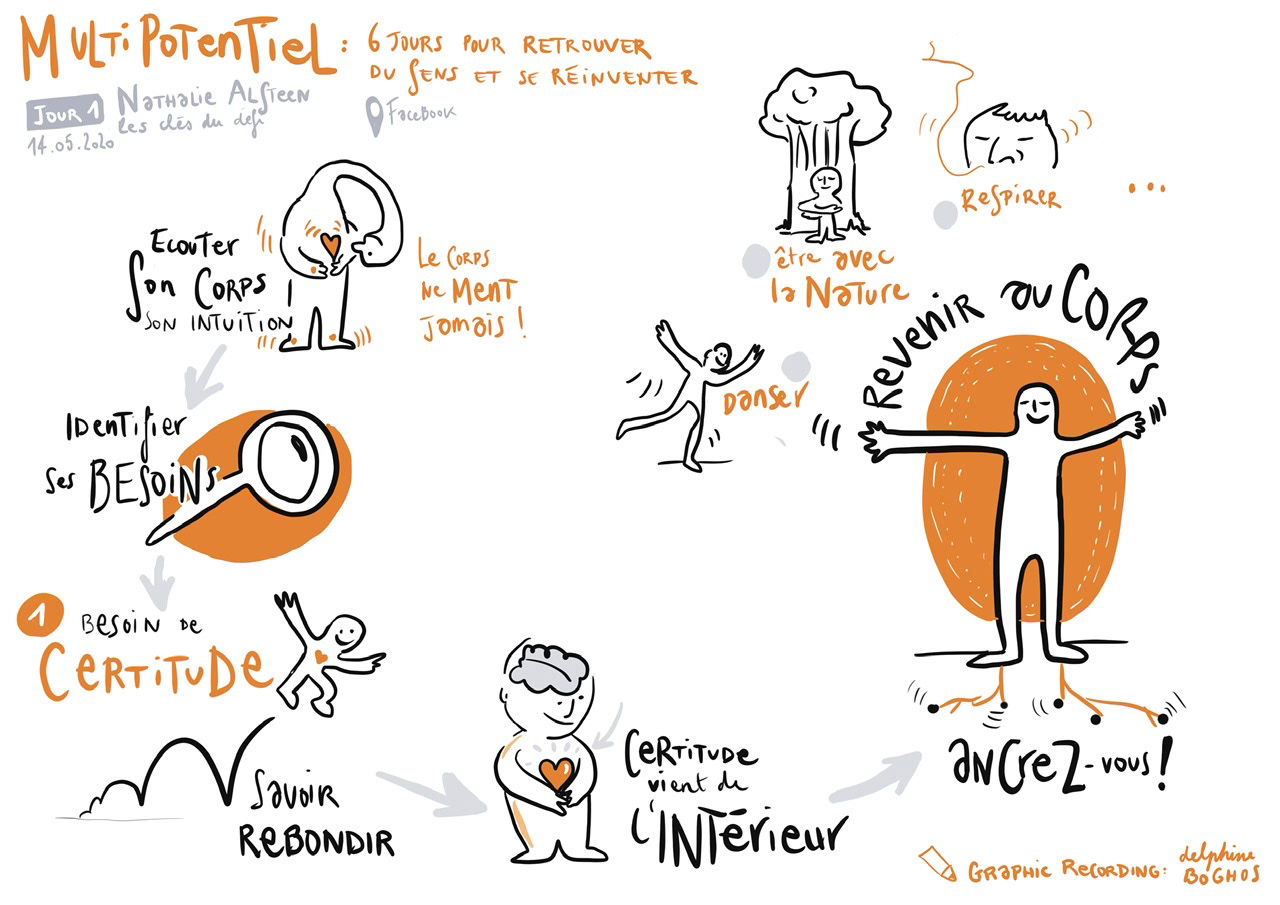 MultiPotentiel : 6 jours pour retrouver
du sens et se réinventer
Jour 1
Nathalie Alsteen
les clés du défi
14.05.2020
Facebook
Ecouter
Son Corps
son intuition
Le corps
ne ment
jamais !
Identifier
ses BESOINS
1
Besoin de
Certitude
Savoir
REBONDIR
Certitude
vient de
l'INTérieur
être avec
la Nature
Respirer
...
Danser
Revenir au Corps
ancrez-vous !
Graphic Recording: delphine
BOGHOS